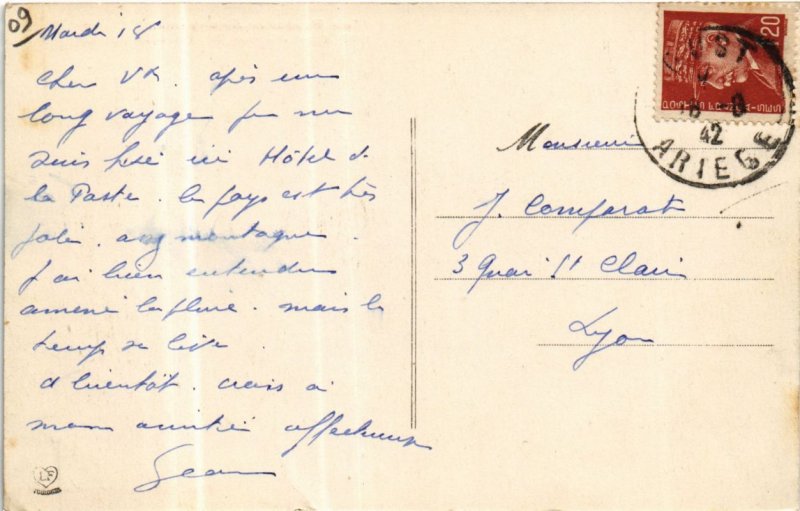 09
Mardi 18
Cher Vx. après un
long voyage je me
suis fixé ici Hôtel de
la Poste. le pays est très
joli. aux montagnes.
J'ai bien entendu
amené la pluie. mais le
temps se lève.
A bientôt. crois à
mon amitié affectueuse
Jean
LF
Monsieur
J. Comparat
3 Quai St Clair
Lyon
UST
42
ARIEGE
POSTES FRANÇAISES
1F20